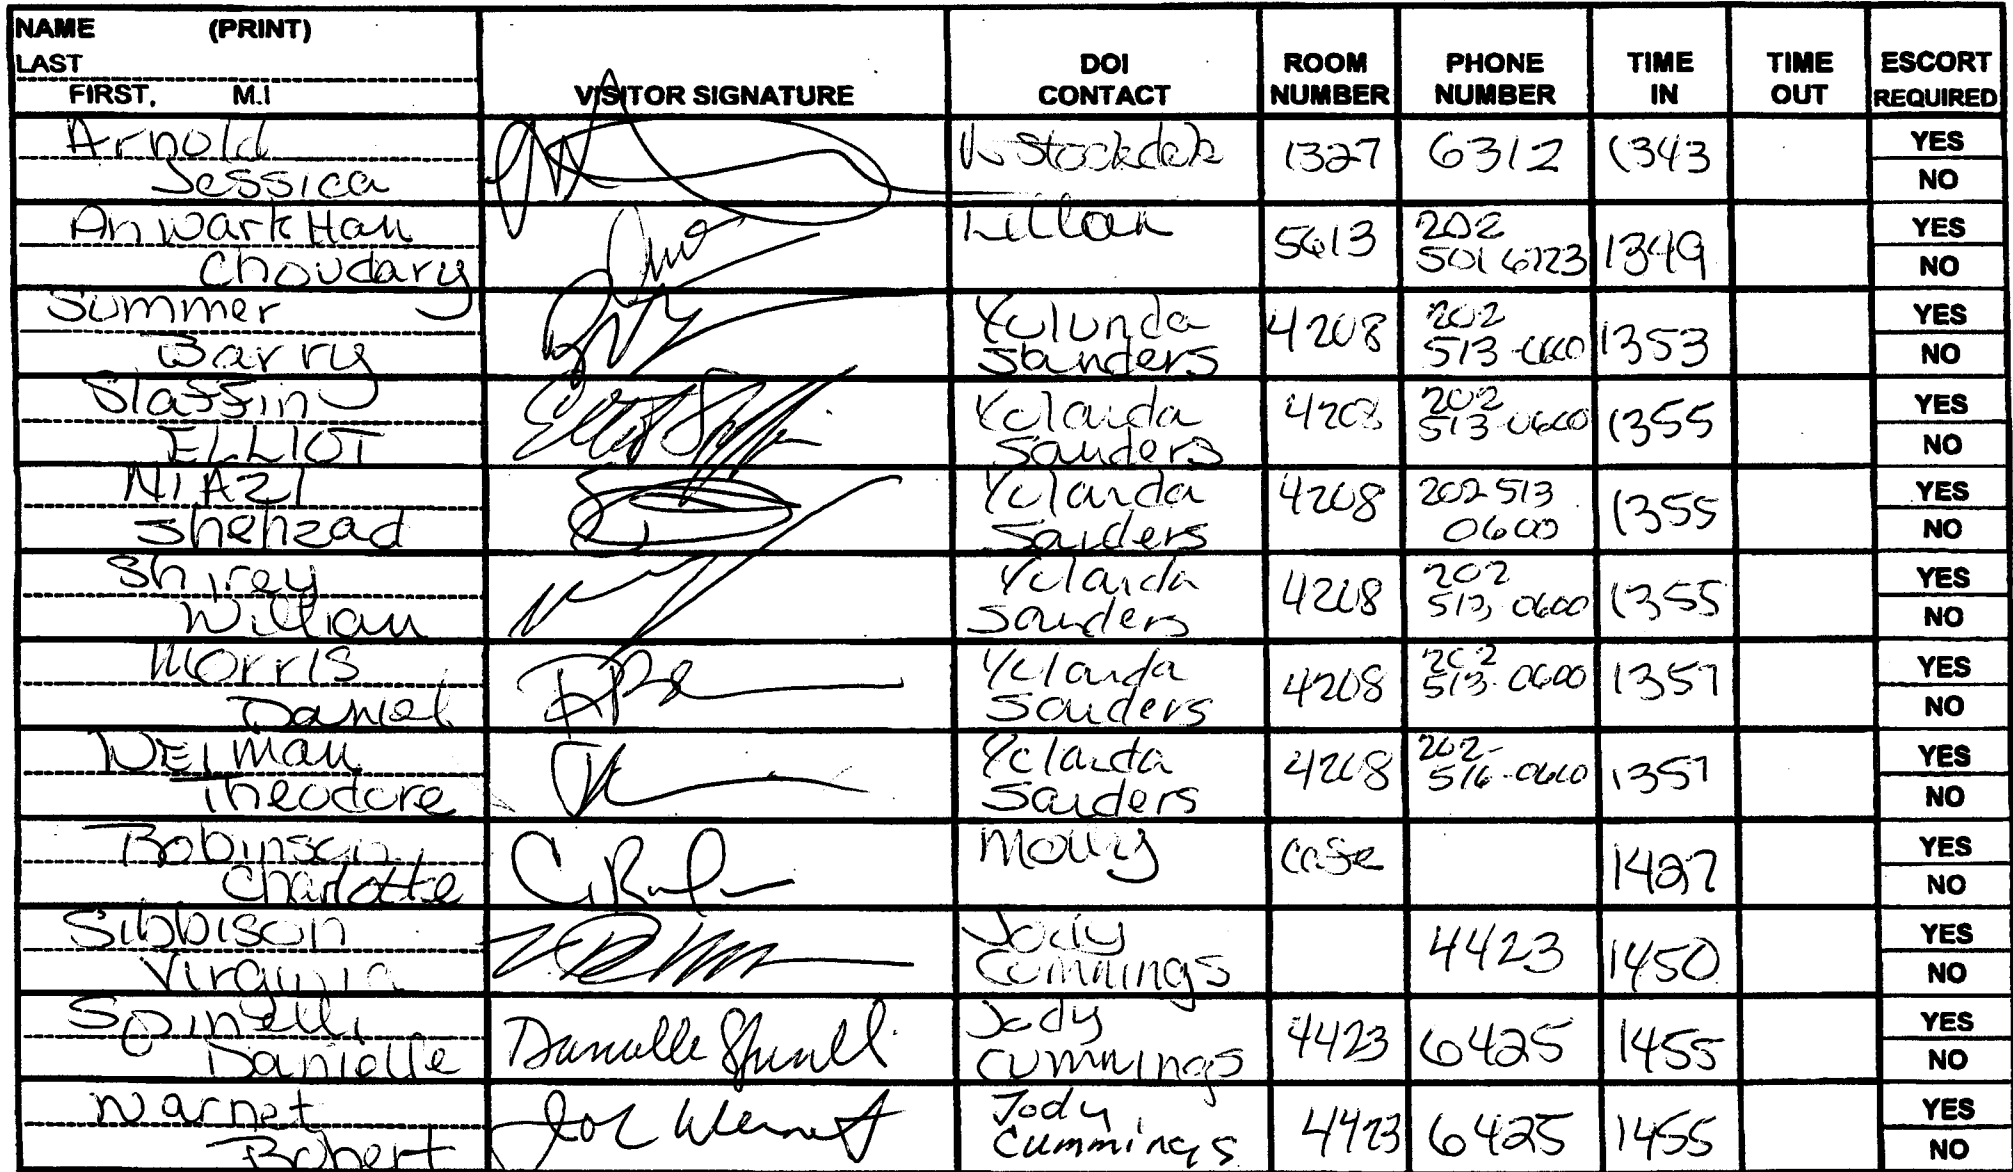 NAME (PRINT)
LAST
FIRST, M.I
VISITOR SIGNATURE
DOI CONTACT
ROOM NUMBER
PHONE NUMBER
TIME IN
TIME OUT
ESCORT REQUIRED
Arnold
Jessica
1327
6312
1343
YES
NO
Anwarkhan
Choudary
5613
202
501 6723
1349
YES
NO
Summer
Barry
Yulunda
Sanders
4208
202
513-0600
1353
YES
NO
Slaffin
ELLIOT
Yolanda
Sanders
4208
202
513-0600
1355
YES
NO
NIAZI
Shehzad
Yolanda
Sanders
4208
202 513
0600
1355
YES
NO
Shirey
William
Yolanda
Sanders
4208
202
513-0600
1355
YES
NO
Morris
Daniel
Yolanda
Sanders
4208
202
513-0600
1357
YES
NO
Neiman
Theodore
Yolanda
Sanders
4208
202-
516-0600
1357
YES
NO
Robinson
Charlotte
Molly
Case
1427
YES
NO
Sibbison
Virginia
Jody
Cummings
4423
1450
YES
NO
Spinelli
Danielle
Danielle Spinelli
Jody
Cummings
4423
6425
1455
YES
NO
Warnet
Robert
Jody
Cummings
4423
6425
1455
YES
NO